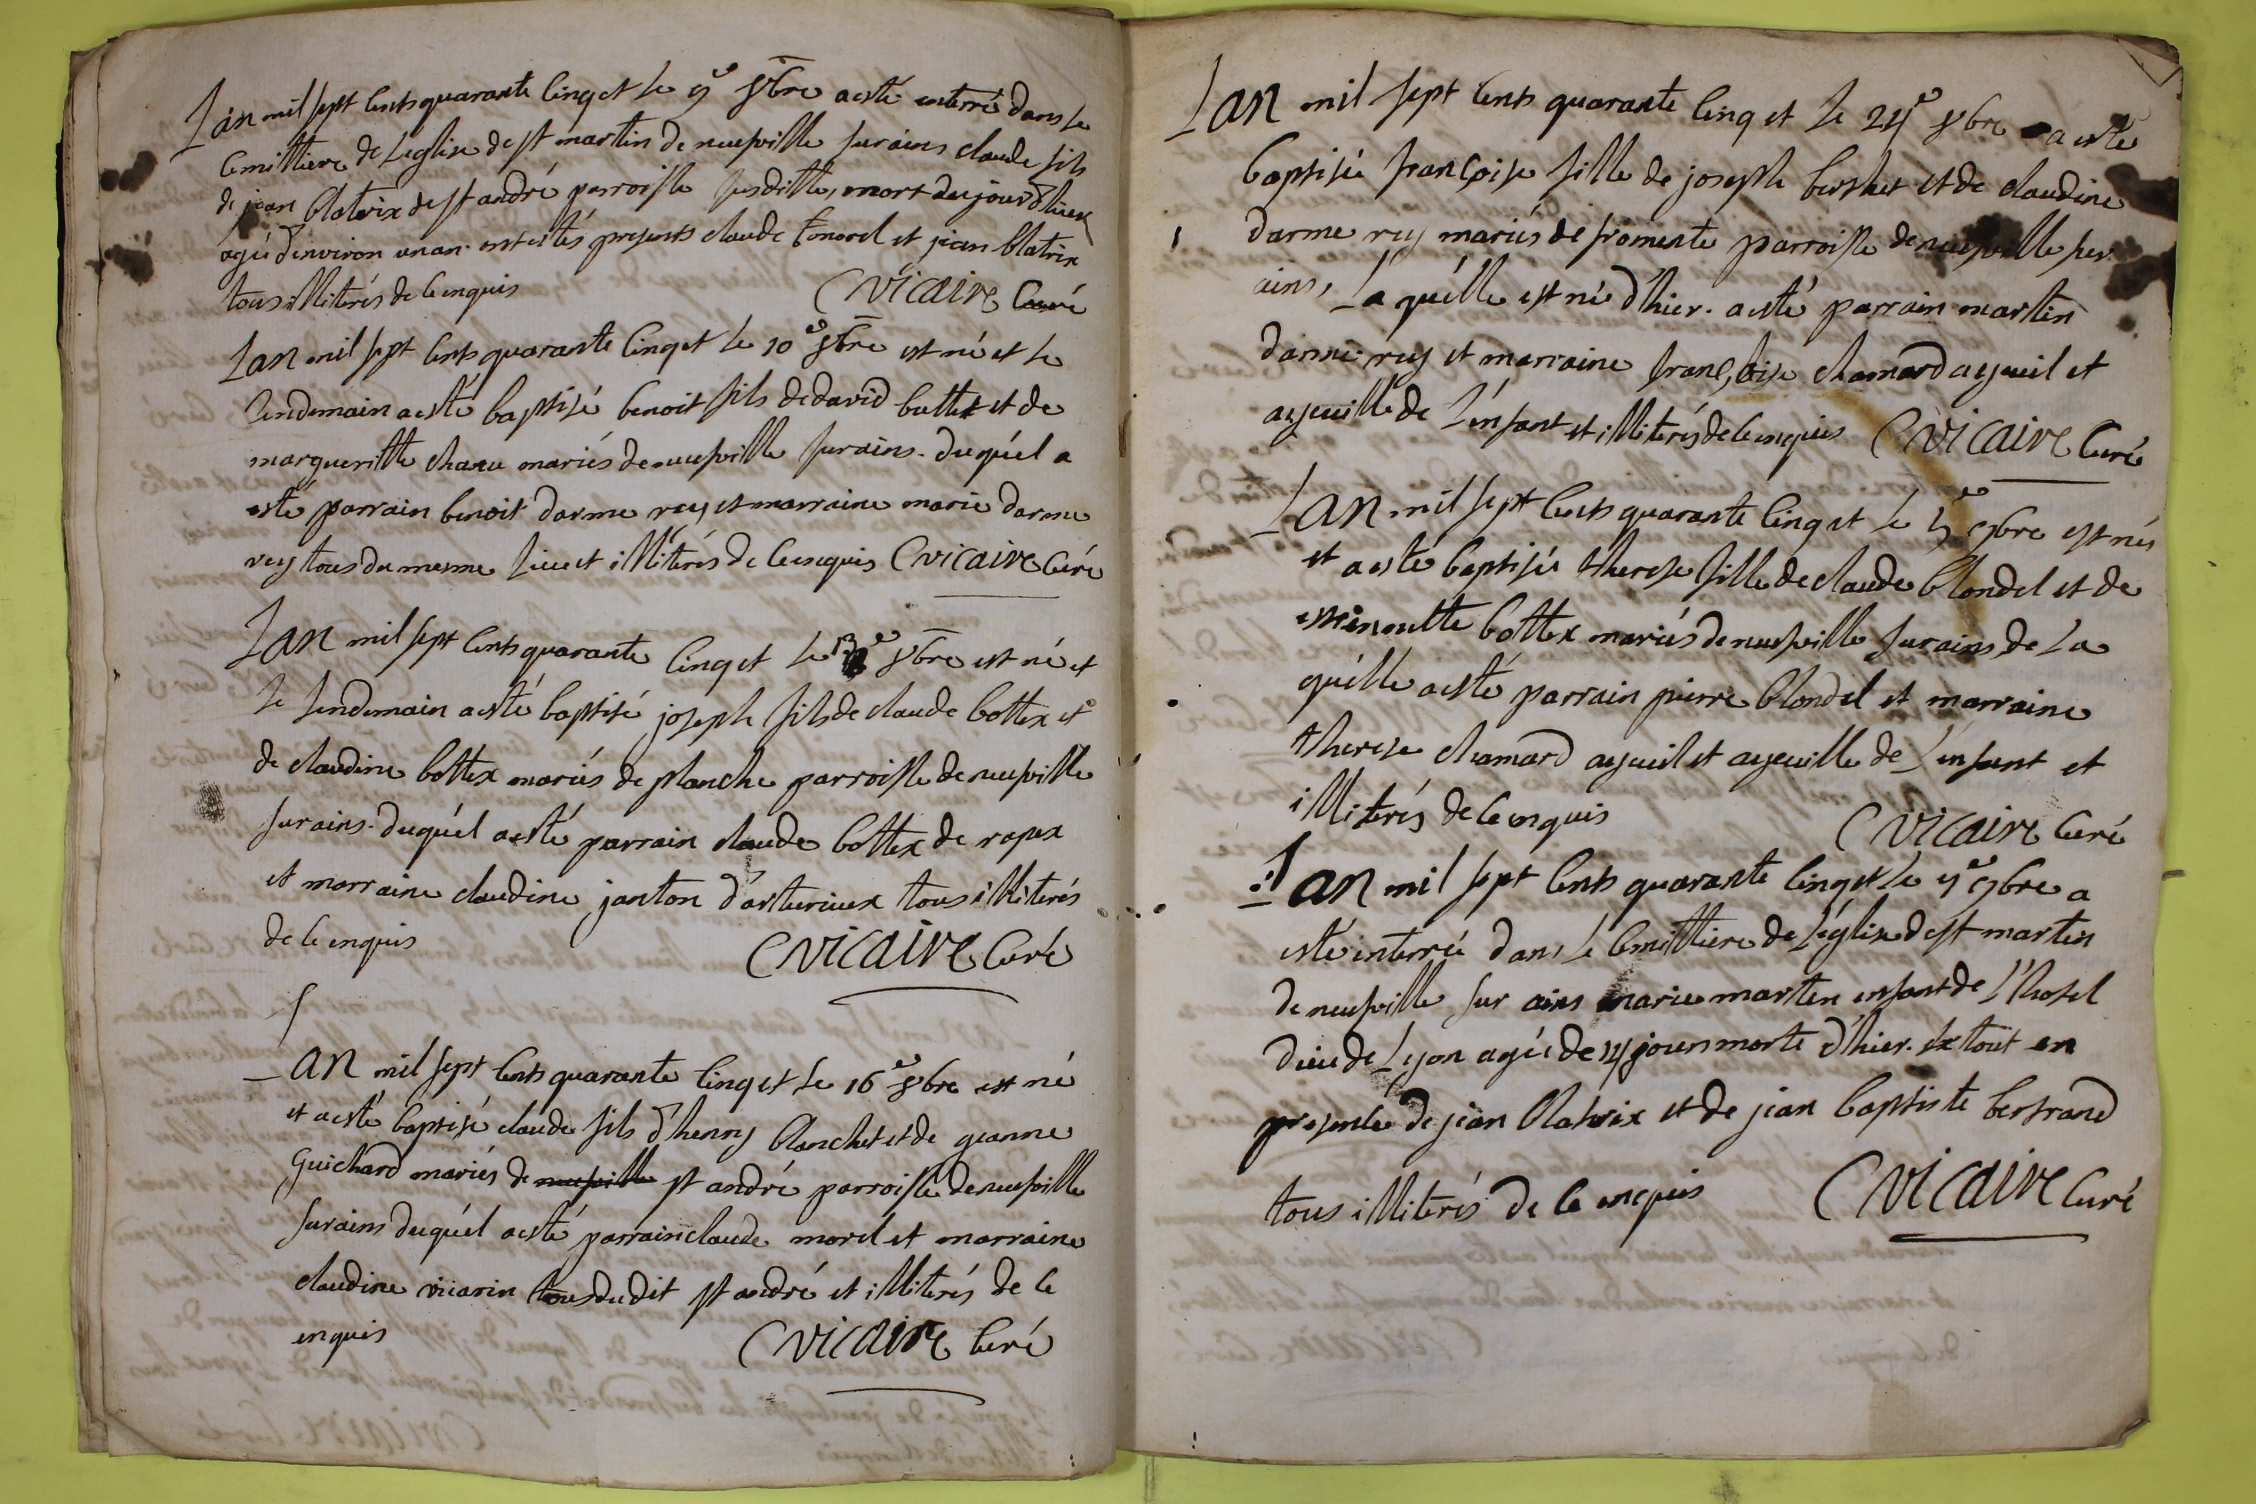 Lan mil sept cents quarante cinq et le 9e 8bre a esté enterré dans le
cemittiere de Leglise de st martin de neufville sur ains claude fils
de jean blatrix de st andré parroisse susditte, mort daujourd'huex
agé d'environ un an. ont estés presents claude et jean blatrix
tous illiterés de ce enquis Cvicaire Curé
Lan mil sept cents quarante cinq et le 10e 8bre est né et le
Lendemain a esté baptisé benoit fils de david buttet et de
margueritte mariés de neufville sur ains. duquél a
esté parrain benoit darme rey et marraine marie darme
rey tous du mesme lieu et illitérés de ce enquis Cvicaire Curé
Lan mil sept cents quarante cinq et le 13e 8bre est né et
le lendemain a esté baptisé joseph fils de claude bottex et
de claudine bottex mariés de planche parroisse de neufville
sur ains. duquél a esté parrain claude bottex de ropex
et marraine claudine janton d'arturieux tous illiterés
de ce enquis Cvicaire Curé
Lan mil sept cents quarante cinq et le 16e 8bre est né
et a esté baptisé claude fils d'henry blanchet et de jeanne
Guichard mariés de neufville st andré parroisse de neufville
sur ains duquél a esté parrain claude morel et marraine
claudine tous dudit st andré et illiterés de ce
enquis Cvicaire Curé
Lan mil sept cents quarante cinq et le 24e 8bre a esté
baptisée françoise fille de joseph berthet et de claudine
darme rey mariés de fromente parroisse de neufville sur
ains, La quélle est née d'hier. a esté parrain martin
darme rey et marraine françoise chamard ayeuil et
ayeuille de L'enfant et illiterés de ce enquis Cvicaire Curé
Lan mil sept cents quarante cinq et le 5e 9bre est née
et a esté baptisée therese fille de claude blondel et de
bottex mariés de neufville sur ains, de La
quélle a esté parrain pierre blondel et marraine
therese chamard ayeuil et ayeuille de L'enfant et
illiterés de ce enquis Cvicaire Curé
Lan mil sept cents quarante cinq et le 9e 9bre a
esté interrée dans le cemittiere de Léglise de st martin
de neufville sur ains marie martin enfant de L'hotel
dieu de Lyon agée de 14 jours morte d'hier. Le tout en
presence de jean blatrix et de jean baptiste bertrand
tous illiterés de ce enquis Cvicaire Curé